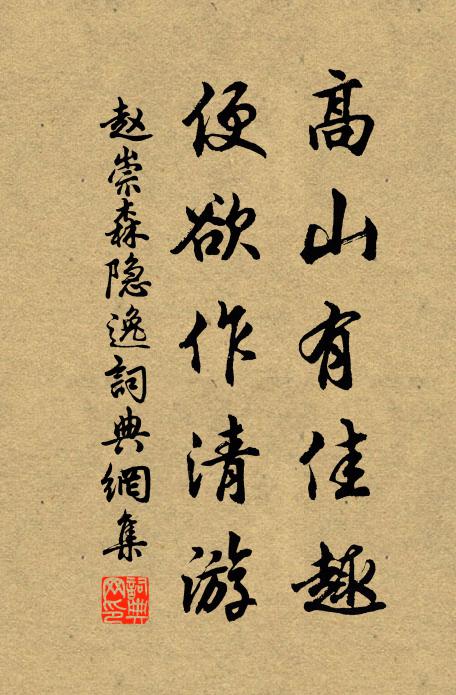 高山有佳趣
便欲作清游
赵崇森隐逸詞典網集
詞典网印